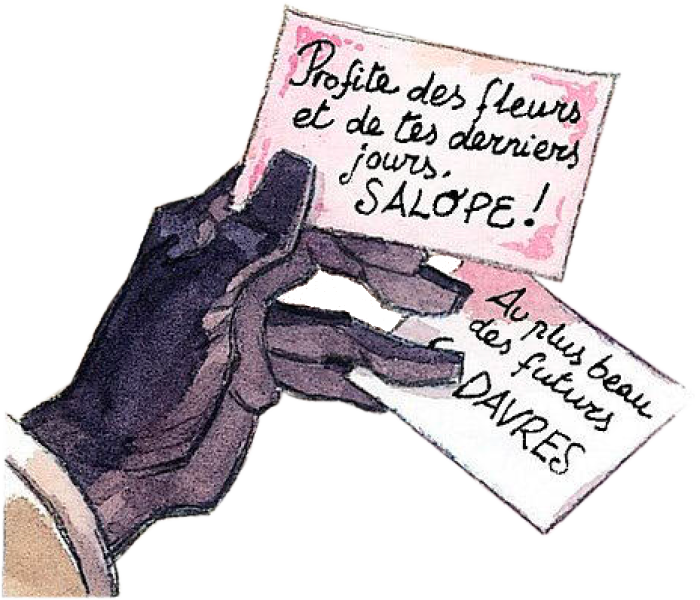 Profite des fleurs
et de tes derniers
jours.
SALOPE!
Au plus beau
des futurs
DAVRES